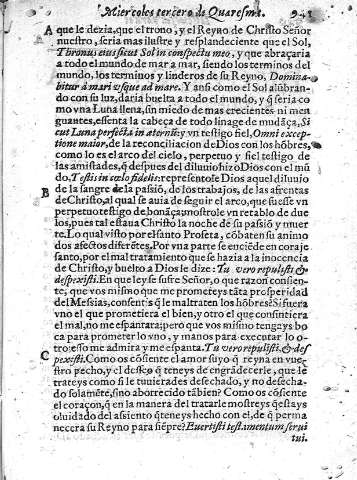 Miercoles tercero de Quaresma. 943
A que le dezia, que el trono, y el Reyno de Christo Señor
nuestro, seria mas ilustre y resplandeciente que el Sol,
Thronus eius sicut Sol in conspectu meo, y que abraçaria
a todo el mundo de mar a mar, siendo los terminos del
mundo, los terminos y linderos de su Reyno. Domina-
bitur à mari usque ad mare. Y ansi como el Sol alũbran-
do con su luz, daria buelta a todo el mundo, y q̃ seria co-
mo vna Luna llena, sin miedo de mas crecientes ni men
guantes, essenta la cabeça de todo linage de mudãça, Si
cut Luna perfecta in æternũ; y vn testigo fiel, Omni excep-
tione maior, de la reconciliacion de Dios con los hõbres,
como lo es el arco del cielo, perpetuo y fiel testigo de
las amistades, q̃ despues del diluuio hizo Dios con el mũ
do, Testis in cœlo fidelis: representole Dios aquel diluuio
B de la sangre de la passiõ, de los trabajos, de las afrentas
de Christo, al qual se auia de seguir el arco, que fuesse vn
perpetuo testigo de bonãça; nostrole vn retablo de due
los, pues tal estaua Christo la noche de su passiõ y muer
te. Lo qual visto por el santo Profeta, cõbaten su animo
dos afectos diferẽtes. Por vna parte se enciẽde en coraje
santo, por el mal tratamiento que se hazia a la inocencia
de Christo, y buelto a Dios le dize: Tu vero repulisti &
despexisti. En que ley se sufre Señor, o que razon consien-
te, que vos mismo que me prometeys tãta prosperidad
del Messias, consentis q̃ le maltraten los hõbres? Si fuera
vno el que prometiera el bien, y otro el que consintiera
el mal, no me espantara; pero que vos mismo tengays bo
ca para prometer lo vno, y manos para executar lo o-
C tro: esso me admira y me espanta. Tu vero repulisti, & des
pexisti. Como os cõsiente el amor suyo q̃ reyna en vues-
tro pecho, y el desseo q̃ teneys de engrãdecerle, que le
trateys como si le tuuierades desechado, y no desecha-
do solamẽte, sino aborrecido tãbien? Como os cõsiente
el coraçon, q̃ en la manera del tratarle mostreys q̃ estays
oluidado del assiento q̃ teneys hecho con el, de q̃ perma
necera su Reyno para siẽpre? Euertisti testamentum serui
tui.